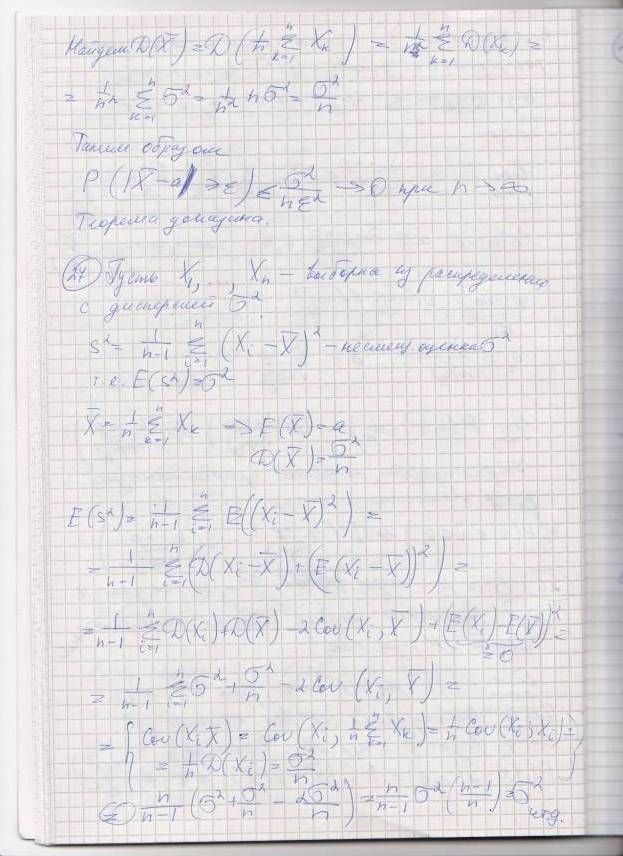 Найдем D(X̄) = D(1/n ∑_{k=1}^{n} X_k) = 1/n² ∑_{k=1}^{n} D(X_k) =
= 1/n² ∑_{k=1}^{n} σ² = 1/n² nσ² = σ²/n
Таким образом
P(|X̄-a| ≥ ε) ≤ σ²/nε² → 0 при n → ∞
Теорема доказана.
27 Пусть X₁, ..., Xₙ - выборка из распределения
с дисперсией σ².
s² = 1/(n-1) ∑_{i=1}^{n} (X_i - X̄)² - несмещ. оценка σ²
т.е. E(s²) = σ²
X̄ = 1/n ∑_{k=1}^{n} X_k → E(X̄) = a
D(X̄) = σ²/n
E(s²) = 1/(n-1) ∑_{i=1}^{n} E((X_i - X̄)²) =
= 1/(n-1) ∑_{i=1}^{n} (D(X_i - X̄) + (E(X_i - X̄))²) =
= 1/(n-1) ∑_{i=1}^{n} D(X_i) + D(X̄) - 2Cov(X_i, X̄) + (E(X_i) - E(X̄))² =
= 0
= 1/(n-1) ∑_{i=1}^{n} σ² + σ²/n - 2Cov(X_i, X̄) =
= { Cov(X_i X̄) = Cov(X_i, 1/n ∑_{k=1}^{n} X_k) = 1/n Cov(X_i, X_i) =
= 1/n D(X_i) = σ²/n }
= n/(n-1) (σ² + σ²/n - 2σ²/n) = n/(n-1) σ² ((n-1)/n) = σ²
чтд.